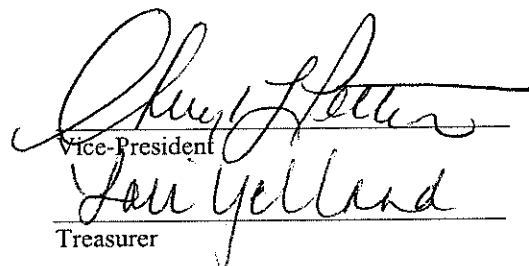 Vice-President
Lori Yelland
Treasurer